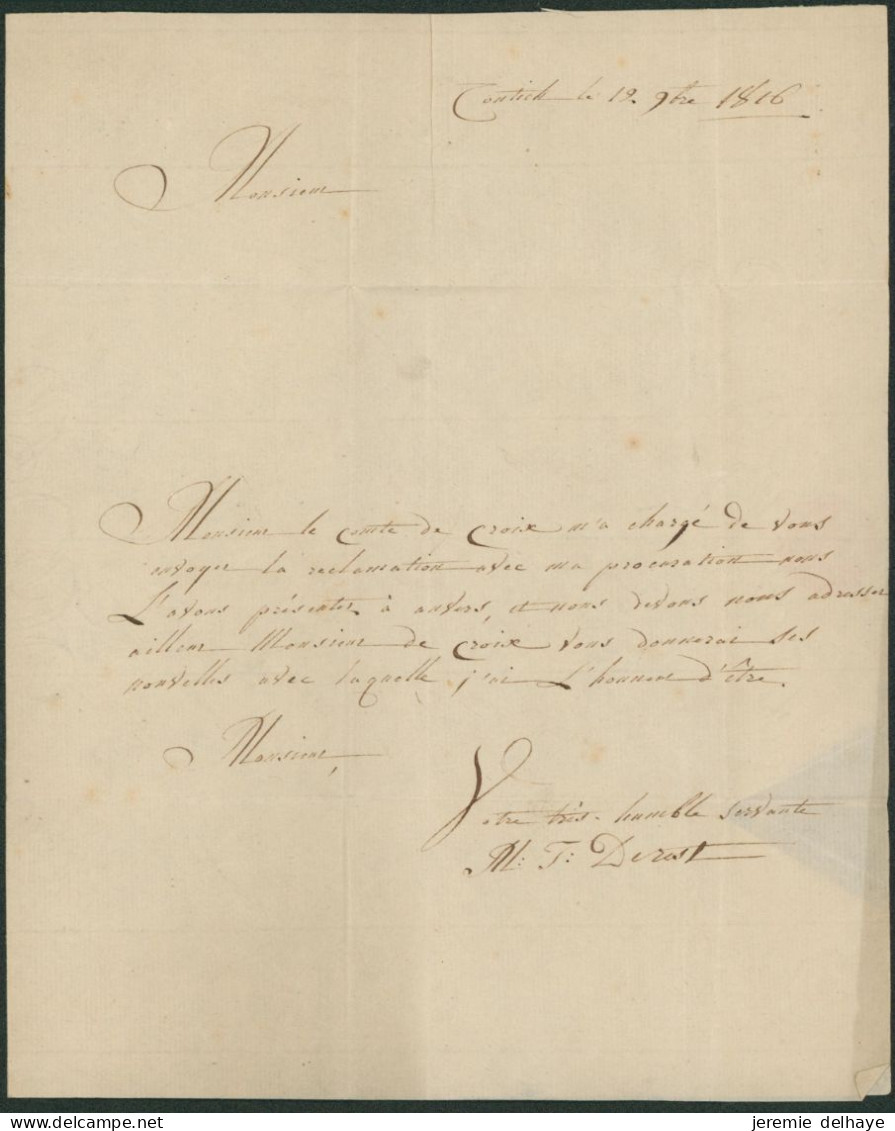 Contich le 19. 9bre 1816
Monsieur
Monsieur le comte de Croix m'a chargé de vous
envoyer la reclamation avec ma procuration nous
L'avons présenter à anvers, et nous devons nous adresser
ailleur Monsieur de Croix vous donnerai ses
nouvelles avec laquelle j'ai L'honneur d'être.
Monsieur,
Votre très-humble servante
M: T: Derost
jeremie delhaye